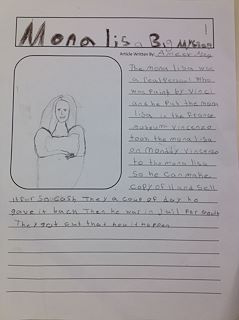 Mona Lisa By
Article Written By: Ameer
The mona lisa was
a real person! Who
was paint by Vinci
and he put the mona
lisa is the France
museum Vincenzo
took the mona lisa
on Monday Vincenzo
to the mona lisa
So he can make
copy of it and Sell
it for They a coup of day he
gave it back Then he war in Jail For
They got out that how it happen